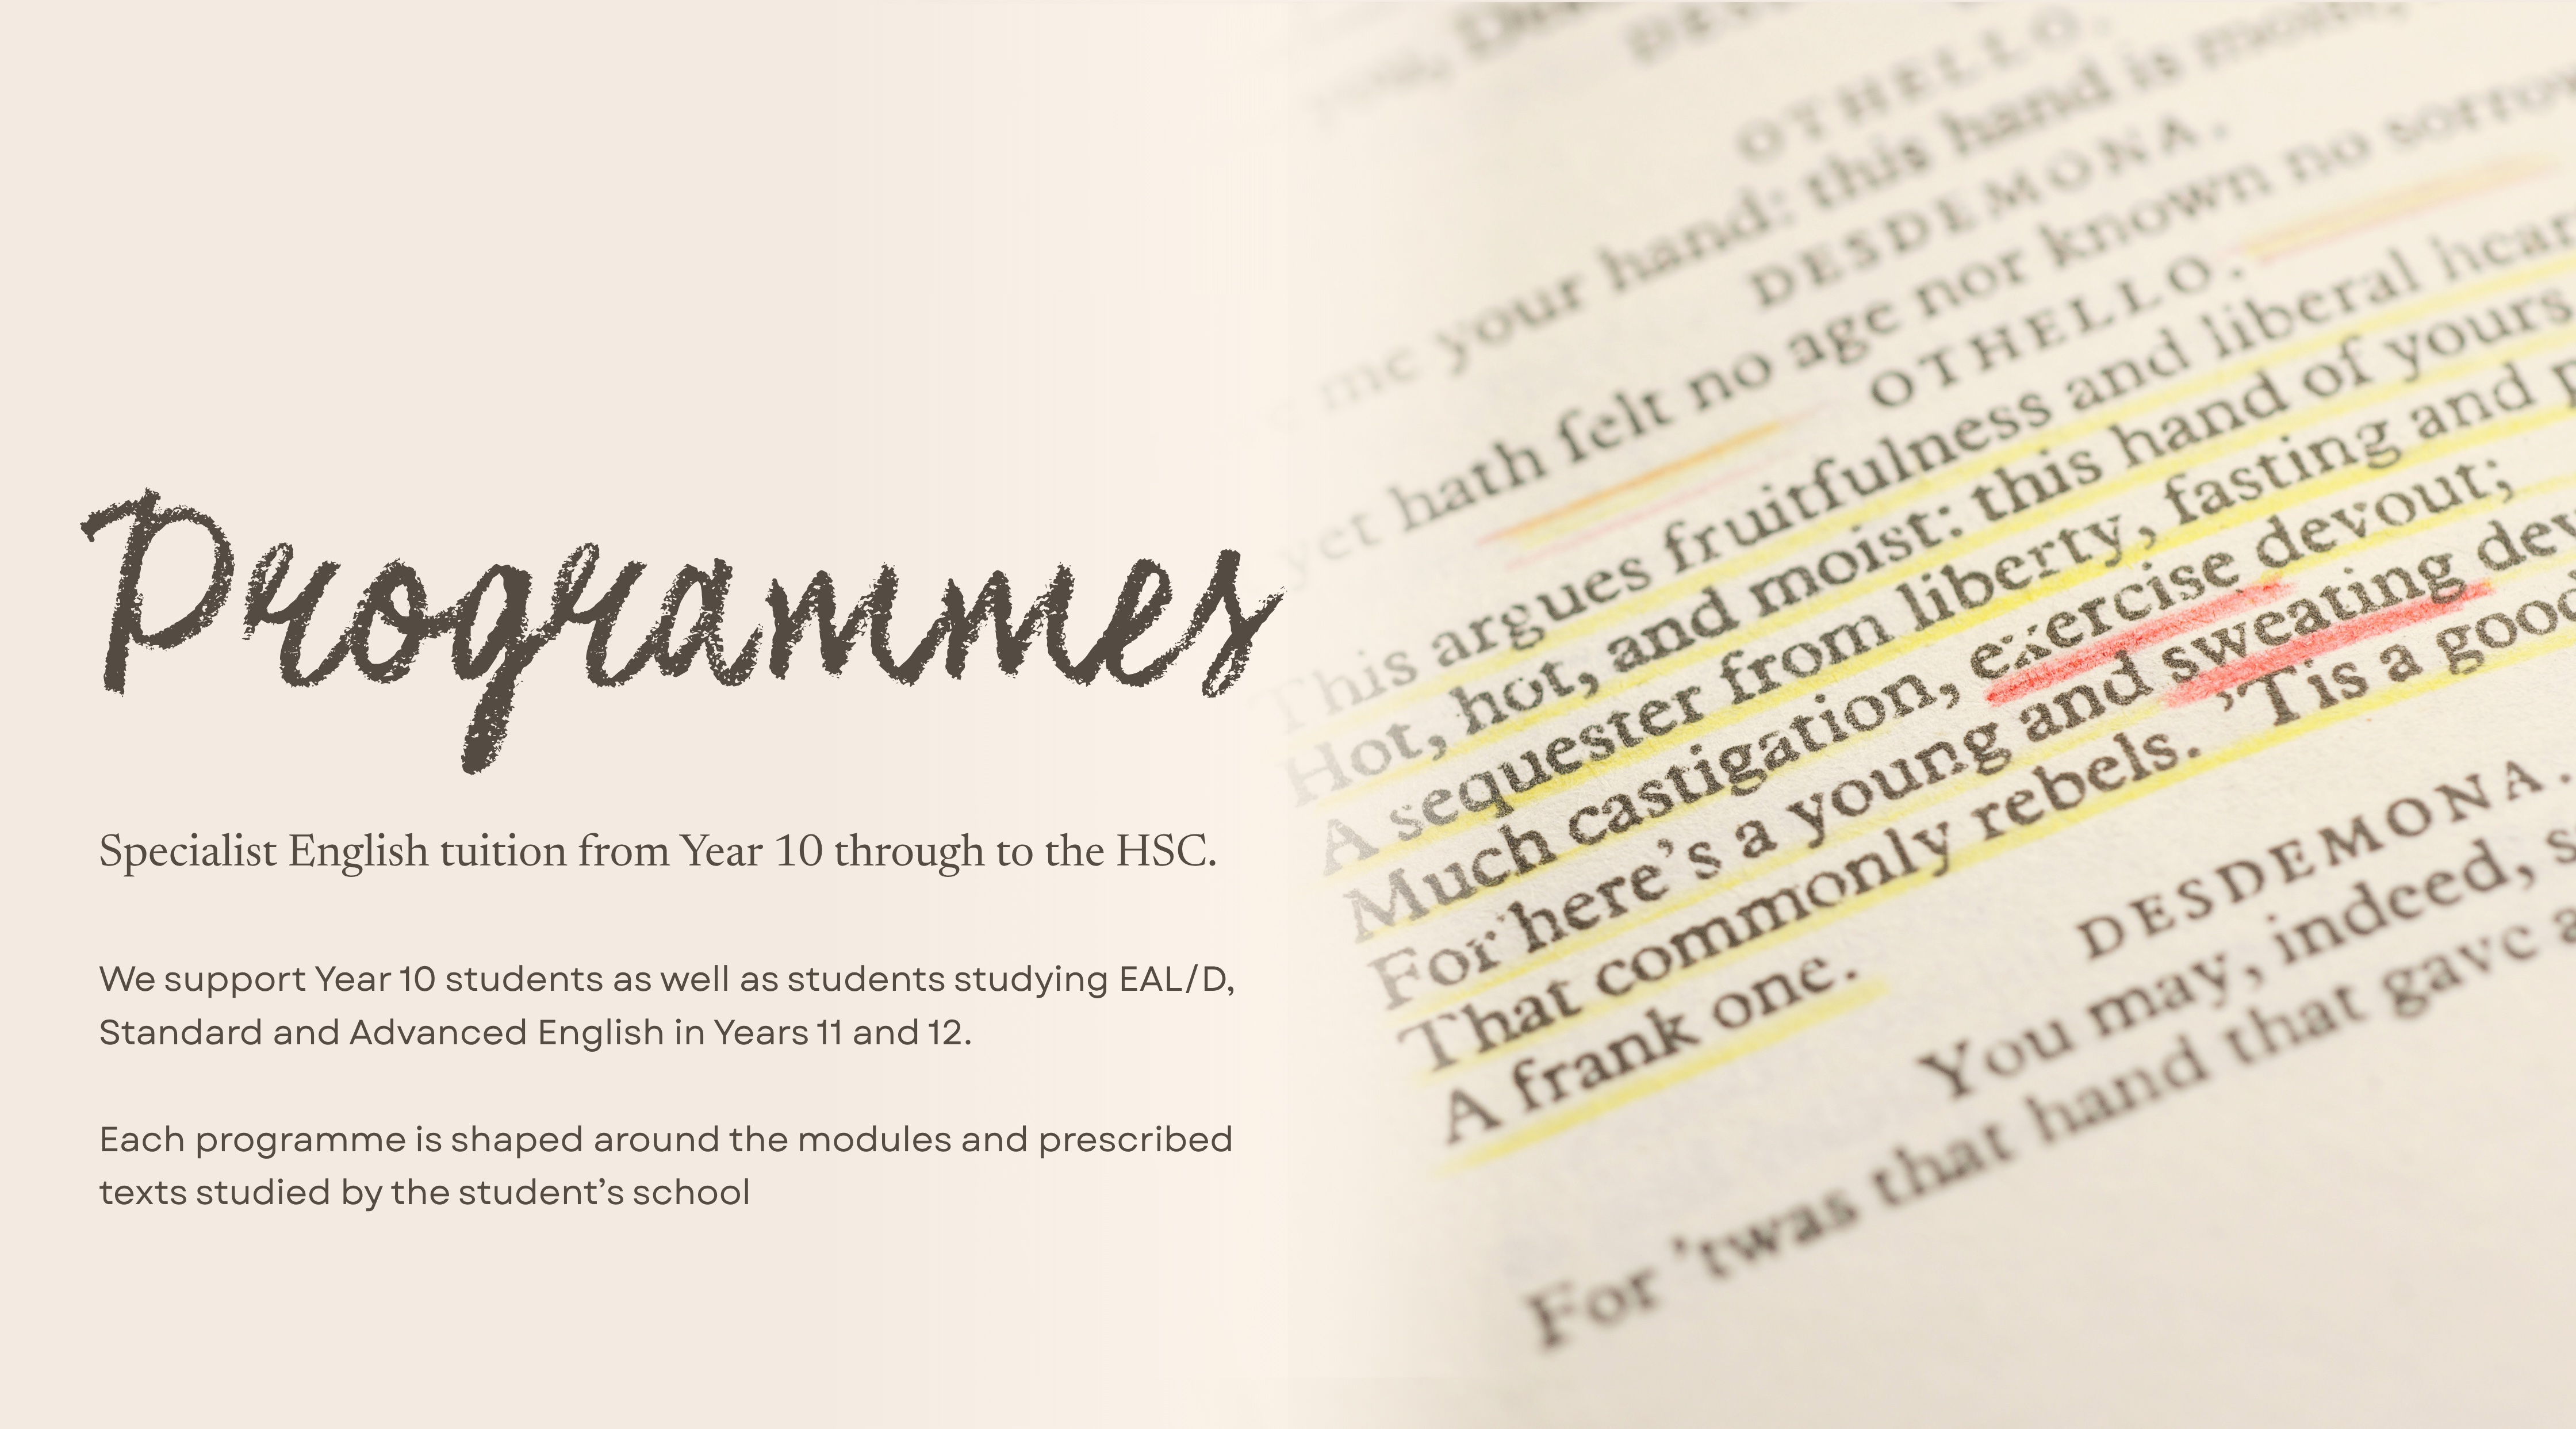 Programmes
Specialist English tuition from Year 10 through to the HSC.
We support Year 10 students as well as students studying EAL/D,
Standard and Advanced English in Years 11 and 12.
Each programme is shaped around the modules and prescribed
texts studied by the student’s school
OTHELLO.
me your hand: this hand is moist,
DESDEMONA.
yet hath felt no age nor known no sorrow
OTHELLO.
This argues fruitfulness and liberal hear
Hot, hot, and moist: this hand of yours
A sequester from liberty, fasting and p
Much castigation, exercise devout;
For here’s a young and sweating dev
That commonly rebels. ’Tis a good
A frank one.
DESDEMONA.
You may, indeed, s
For ’twas that hand that gave a